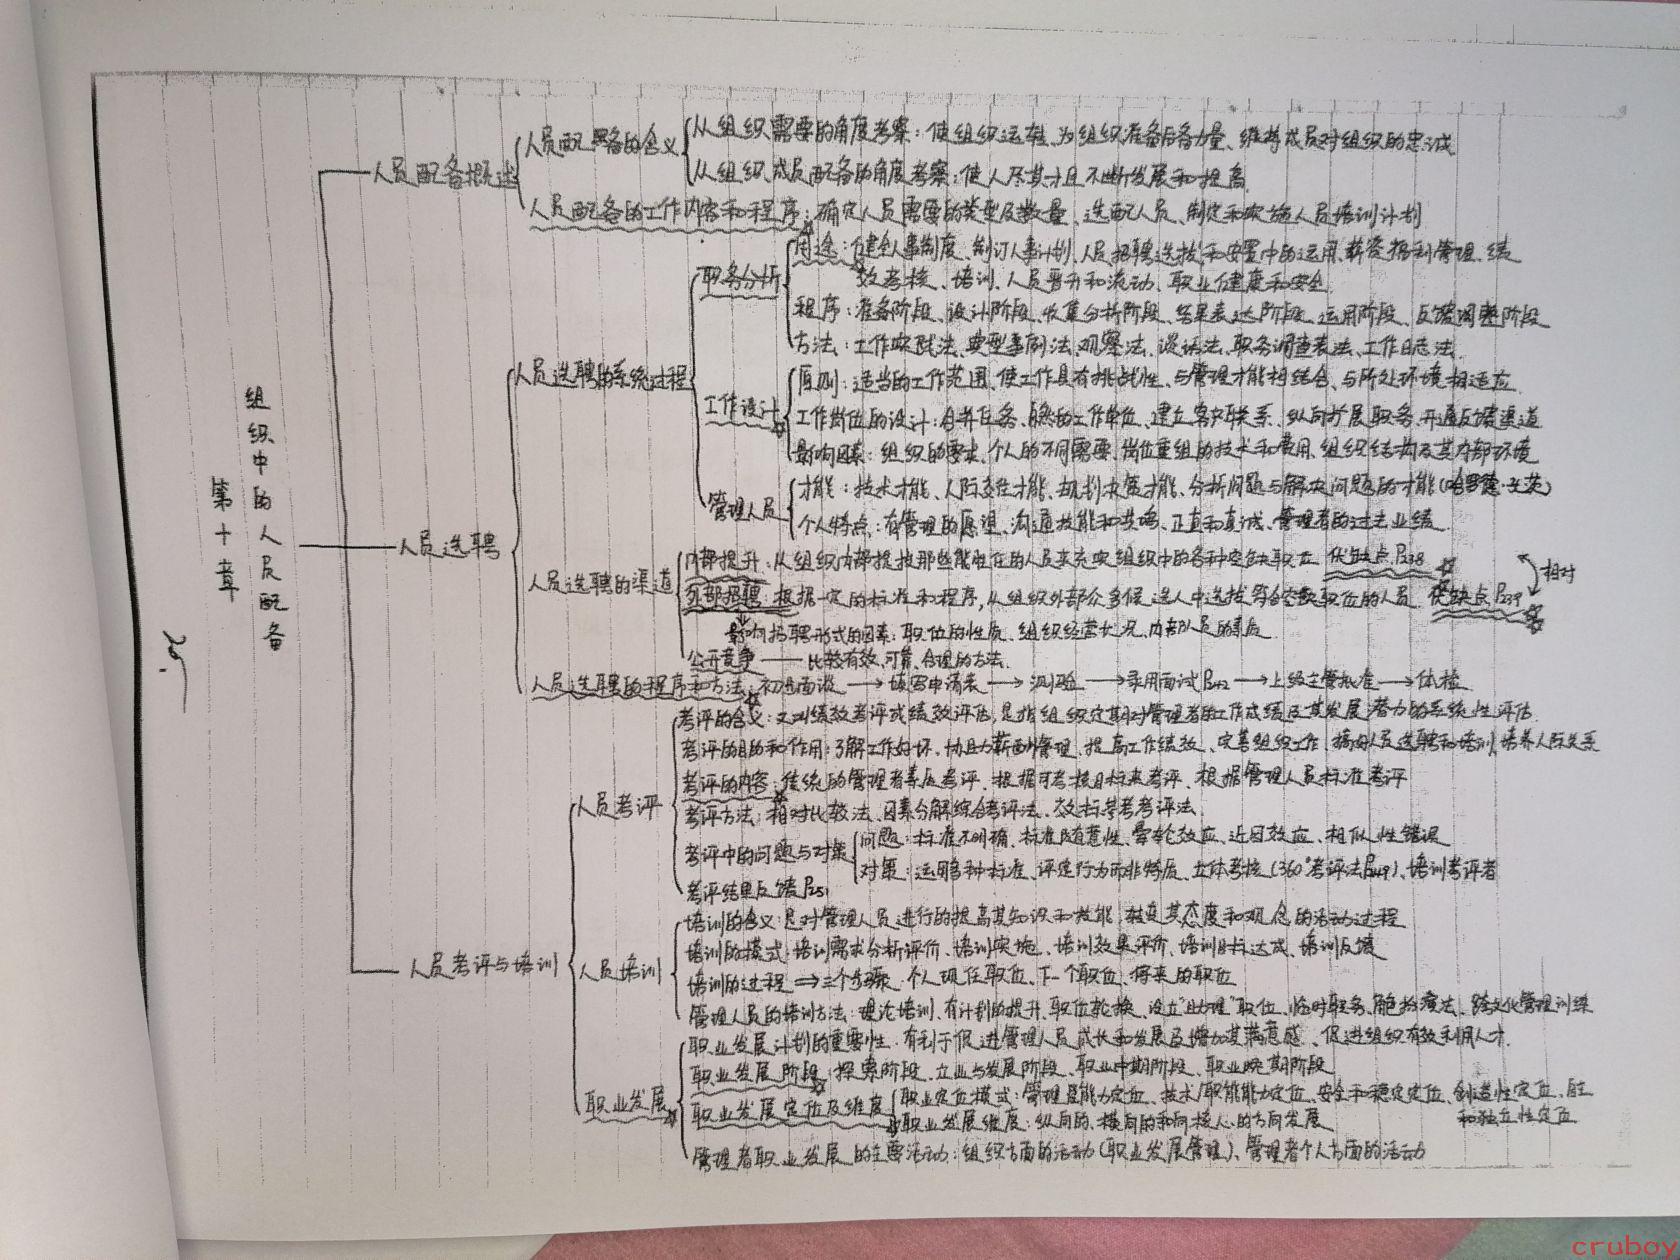 第十章
组织中的人员配备
人员配备概述
人员配备的含义
从组织需要的角度考察：使组织运转、为组织准备后备力量、维持成员对组织的忠诚
从组织成员配备的角度考察：使人尽其才且不断发展和提高
人员配备的工作内容和程序：确定人员需要的类型及数量、选配人员、制定和实施人员培训计划
人员选聘
人员选聘的系统过程
职务分析
用途：健全人事制度、制订人事计划、人员招聘选拔和安置中的运用、薪资福利管理、绩
效考核、培训、人员晋升和流动、职业健康和安全
程序：准备阶段、设计阶段、收集分析阶段、结果表达阶段、运用阶段、反馈调整阶段
方法：工作实践法、典型事例法、观察法、谈话法、职务调查表法、工作日志法
工作设计
原则：适当的工作范围、使工作具有挑战性、与管理才能相结合、与所处环境相适应
工作岗位的设计：合并任务、自然的工作单位、建立客户联系、纵向扩展职务、开通反馈渠道
影响因素：组织的要求、个人的不同需要、岗位重组的技术和费用、组织结构及其内部环境
管理人员
才能：技术才能、人际交往才能、规划决策才能、分析问题与解决问题的才能(哈罗德·孔茨)
个人特点：有管理的愿望、沟通技能和共鸣、正直和真诚、管理者的过去业绩
人员选聘的渠道
内部提升：从组织内部提拔那些能胜任的人员来充实组织中的各种空缺职位 优缺点P238
外部招聘：根据一定的标准和程序，从组织外部众多候选人中选拔符合空缺职位的人员 优缺点P239
相对
影响招聘形式的因素：职位的性质、组织经营状况、内部人员的素质
公开竞争——比较有效、可靠、合理的方法
人员选聘的程序和方法：初选面谈→填写申请表→测验→录用面试P242→上级主管批准→体检
人员考评与培训
人员考评
考评的含义：又叫绩效考评或绩效评估，是指组织定期对管理者的工作成绩及其发展潜力的系统性评估
考评的目的和作用：了解工作好坏、协助薪酬管理、提高工作绩效、完善组织工作、搞好人员选聘和培训、培养人际关系
考评的内容：传统的管理者素质考评、根据可考核目标来考评、根据管理人员标准考评
考评方法：相对比较法、因素分解综合考评法、效标参考考评法
考评中的问题与对策
问题：标准不明确、标准随意性、晕轮效应、近因效应、相似性错误
对策：运用多种标准、评定行为而非特质、立体考核(360°考评法P249)、培训考评者
考评结果反馈P251
人员培训
培训的含义：是对管理人员进行的提高其知识和技能、转变其态度和观念的活动过程
培训的模式：培训需求分析评价、培训实施、培训效果评价、培训目标达成、培训反馈
培训的过程⇒三个步骤：个人现任职位、下一个职位、将来的职位
管理人员的培训方法：理论培训、有计划的提升、职位轮换、设立“助理”职位、临时职务、角色扮演法、跨文化管理训练
职业发展
职业发展计划的重要性：有利于促进管理人员成长和发展及增加其满意感、促进组织有效利用人才
职业发展阶段：探索阶段、立业与发展阶段、职业中期阶段、职业晚期阶段
职业发展定位及维度
职业定位模式：管理是能力定位、技术/职能能力定位、安全和稳定定位、创造性定位、自主
和独立性定位
职业发展维度：纵向的、横向的和向核心的方向发展
管理者职业发展的主要活动：组织方面的活动(职业发展管理)、管理者个人方面的活动
cruboy